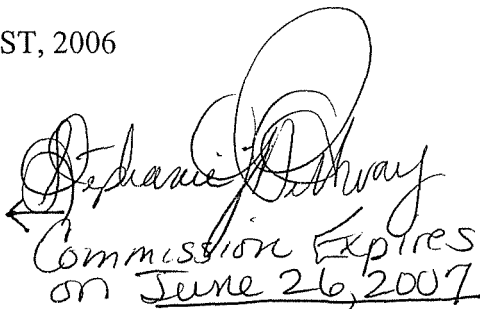 ST, 2006
Stephanie
Commission Expires
on June 26, 2007